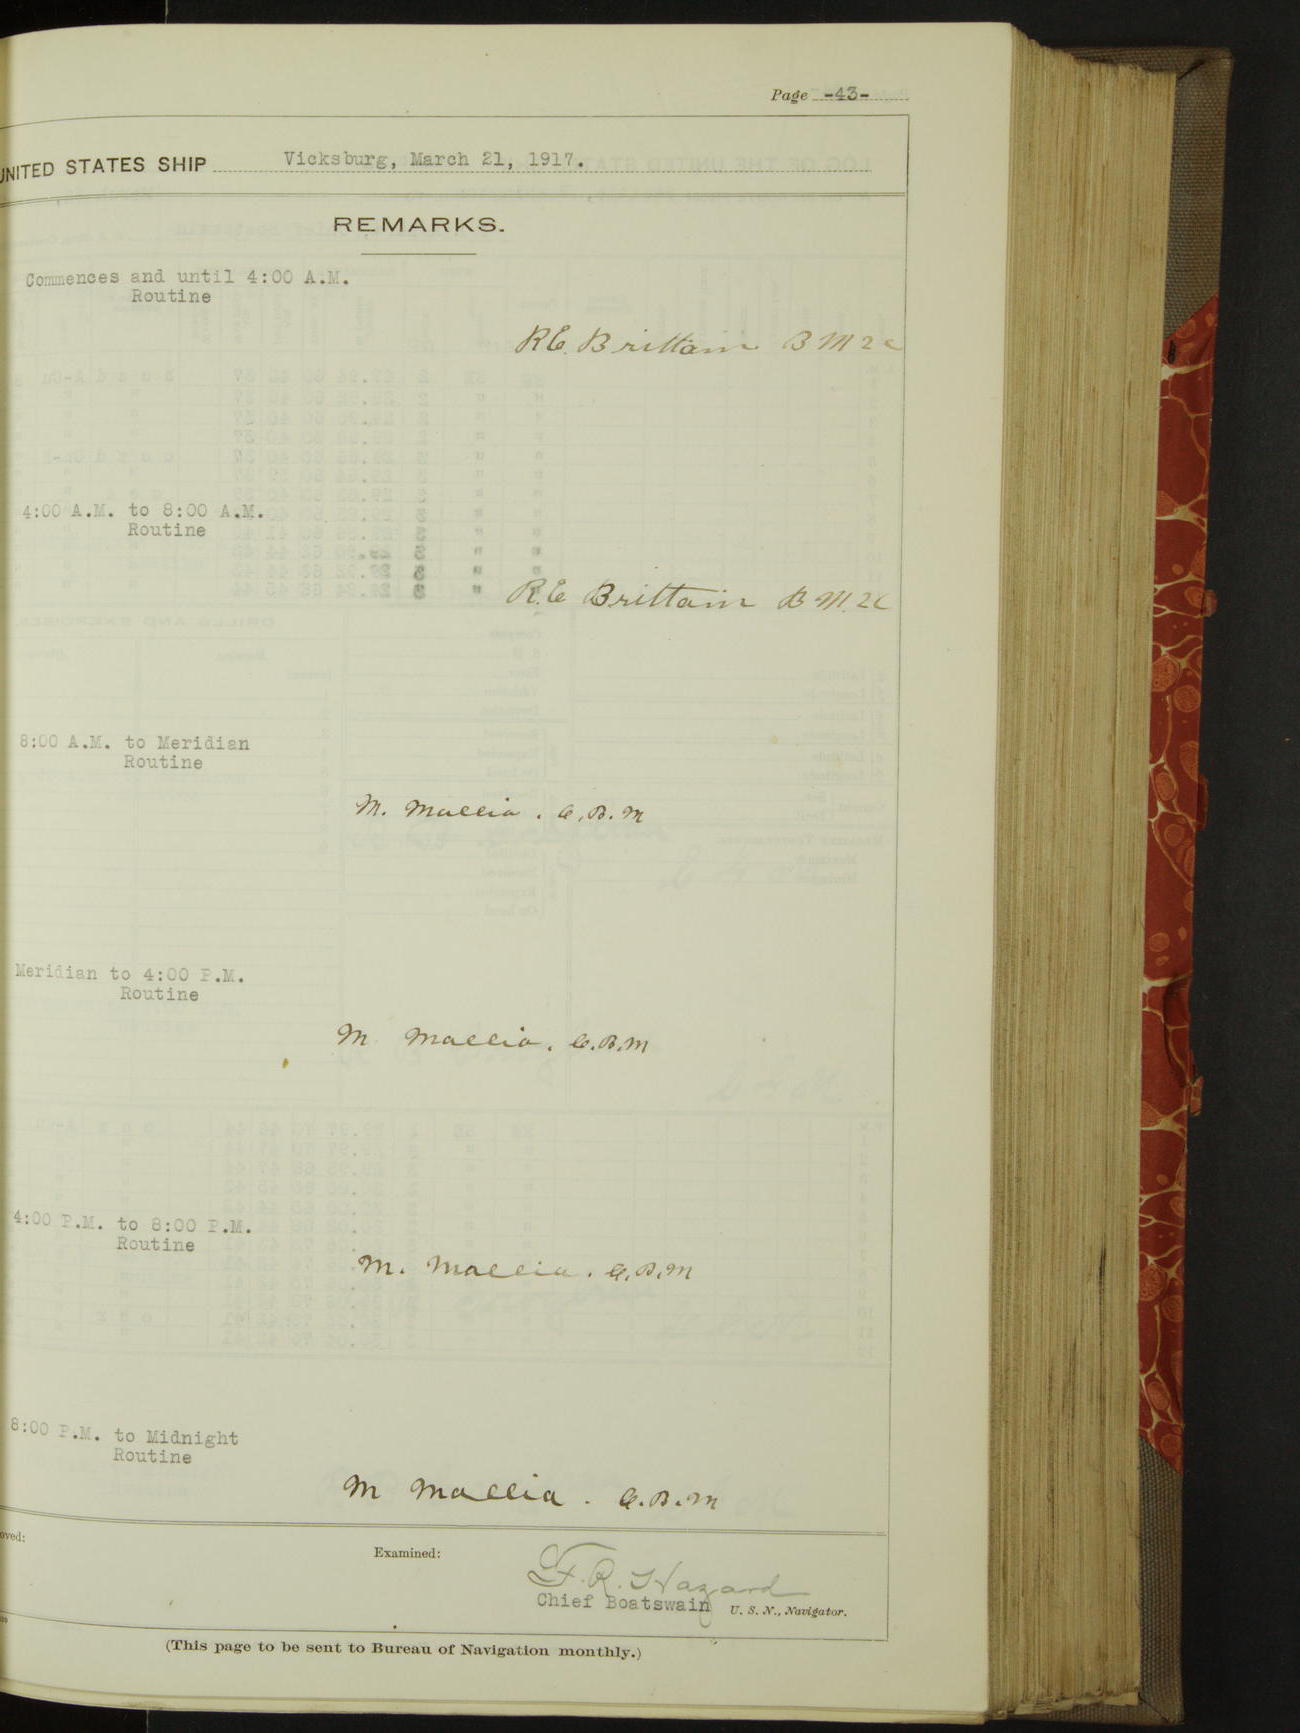 Page -43-
UNITED STATES SHIP Vicksburg, March 21, 1917.
REMARKS.
Commences and until 4:00 A.M.
Routine
R.E. Brittain B M 2 c
4:00 A.M. to 8:00 A.M.
Routine
R.E Brittain B M. 2 C
8:00 A.M. to Meridian
Routine
M. Mallia. C.B.M
Meridian to 4:00 P.M.
Routine
M Mallia. C.B.M
4:00 P.M. to 8:00 P.M.
Routine
M. Mallia. C.B.M
8:00 P.M. to Midnight
Routine
M Mallia. C.B.M
oved:
Examined:
F.R. Hazard
Chief Boatswain U. S. N., Navigator.
(This page to be sent to Bureau of Navigation monthly.)